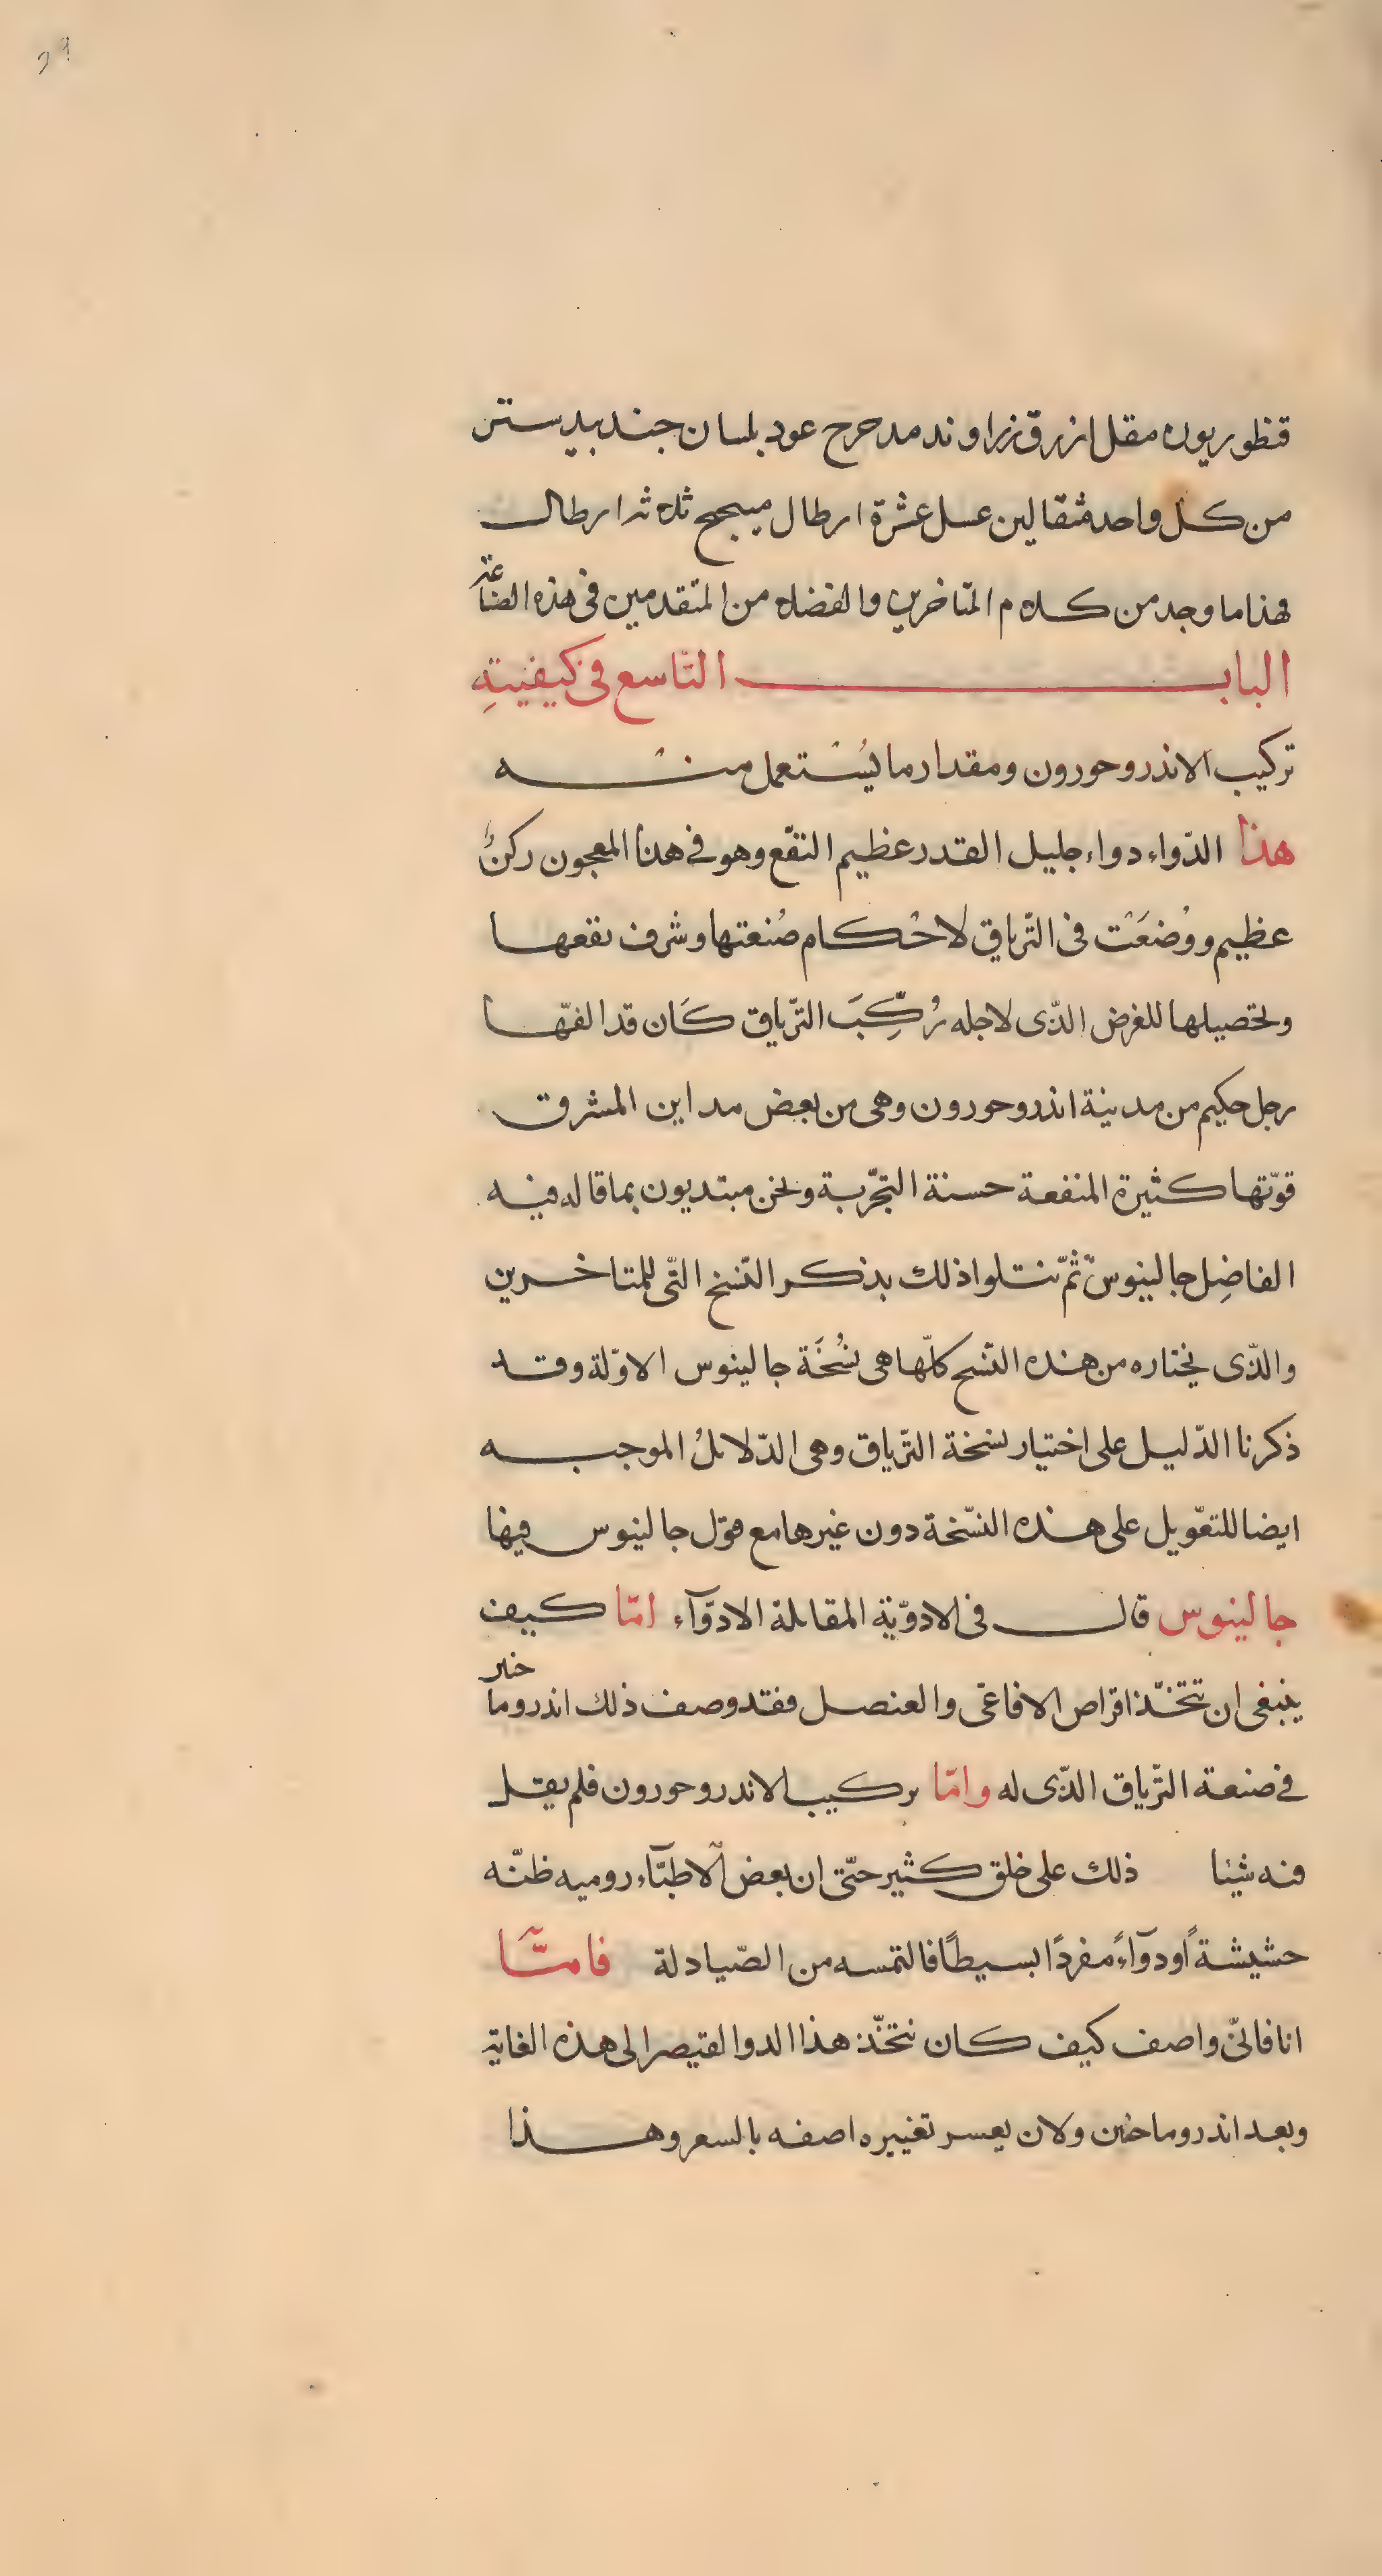 29
قنطوريون مقل ازرق زراوند مدحرح عود بلسان جندبيدستر
من كل واحد مثقالين عسل عشرة ارطال ميبحج ثلاثه ارطال
فهذا ما وجد من كلام المتاخرين والفضلا من المتقدمين فى هذه الصناعة
الباب التّاسع فى كيفيتِه
تركيب الاندروحورون ومقدار ما يُسْتعمل منه
هذا الدّواء دواء جليل القدر عظيم النفّع وهو فى هذا المعجون ركنٌ
عظيم ووُضعَتْ فى التّرياق لاحْكام صُنعتها وشرف نفعها
ولتحصيلها للغرض الذّى لاجله رُكِّبَ التّرياق كَان قد الفّها
رجل حكيم من مدينة اندروحورون وهى من بعض مداين المشرق
قوّتها كثيرة المنفعة حسنة التجّربة ونحن مبتديون بما قاله فيه
الفاضِل جالينوسّ ثمّ نتلوا ذلك بذكر النّسخ التّى للمتاخرين
والذّى نختاره من هذه النّسخ كلّها هى نسُخَة جالينوس الاوّلة وقد
ذكرنا الدّليل على اختيار نسخة التّرياق وهى الدّلائلُ الموجبه
ايضا للتعّويل على هذه النسّخة دون غيرها مع قوّل جالينوس فيها
جالينوس قال فى الادوّية المقابلة الادوّآء امّا كيف
ينبغى ان تتّخذ اقراص الافاعّى والعنصل فقد وصف ذلك اندروماخر
فى صنعة التّرياق الذّى له وامّا تركيب الاندروحورون فلم يقل
فيه شيئا ذلك على خلق كثير حتّى ان بعض الآطبّآء روميه ظنّه
حشيشة اًو دوآءً مفردًا بسيطًا فالتمسه من الصّيادلة فامّا
انا فانىّ واصف كيف كان نتخّذ هذا الدوا لقيصر الى هذه الغاية
وبعد اندروماخس ولان يعسر تغييره اصفه بالسعر وهذا